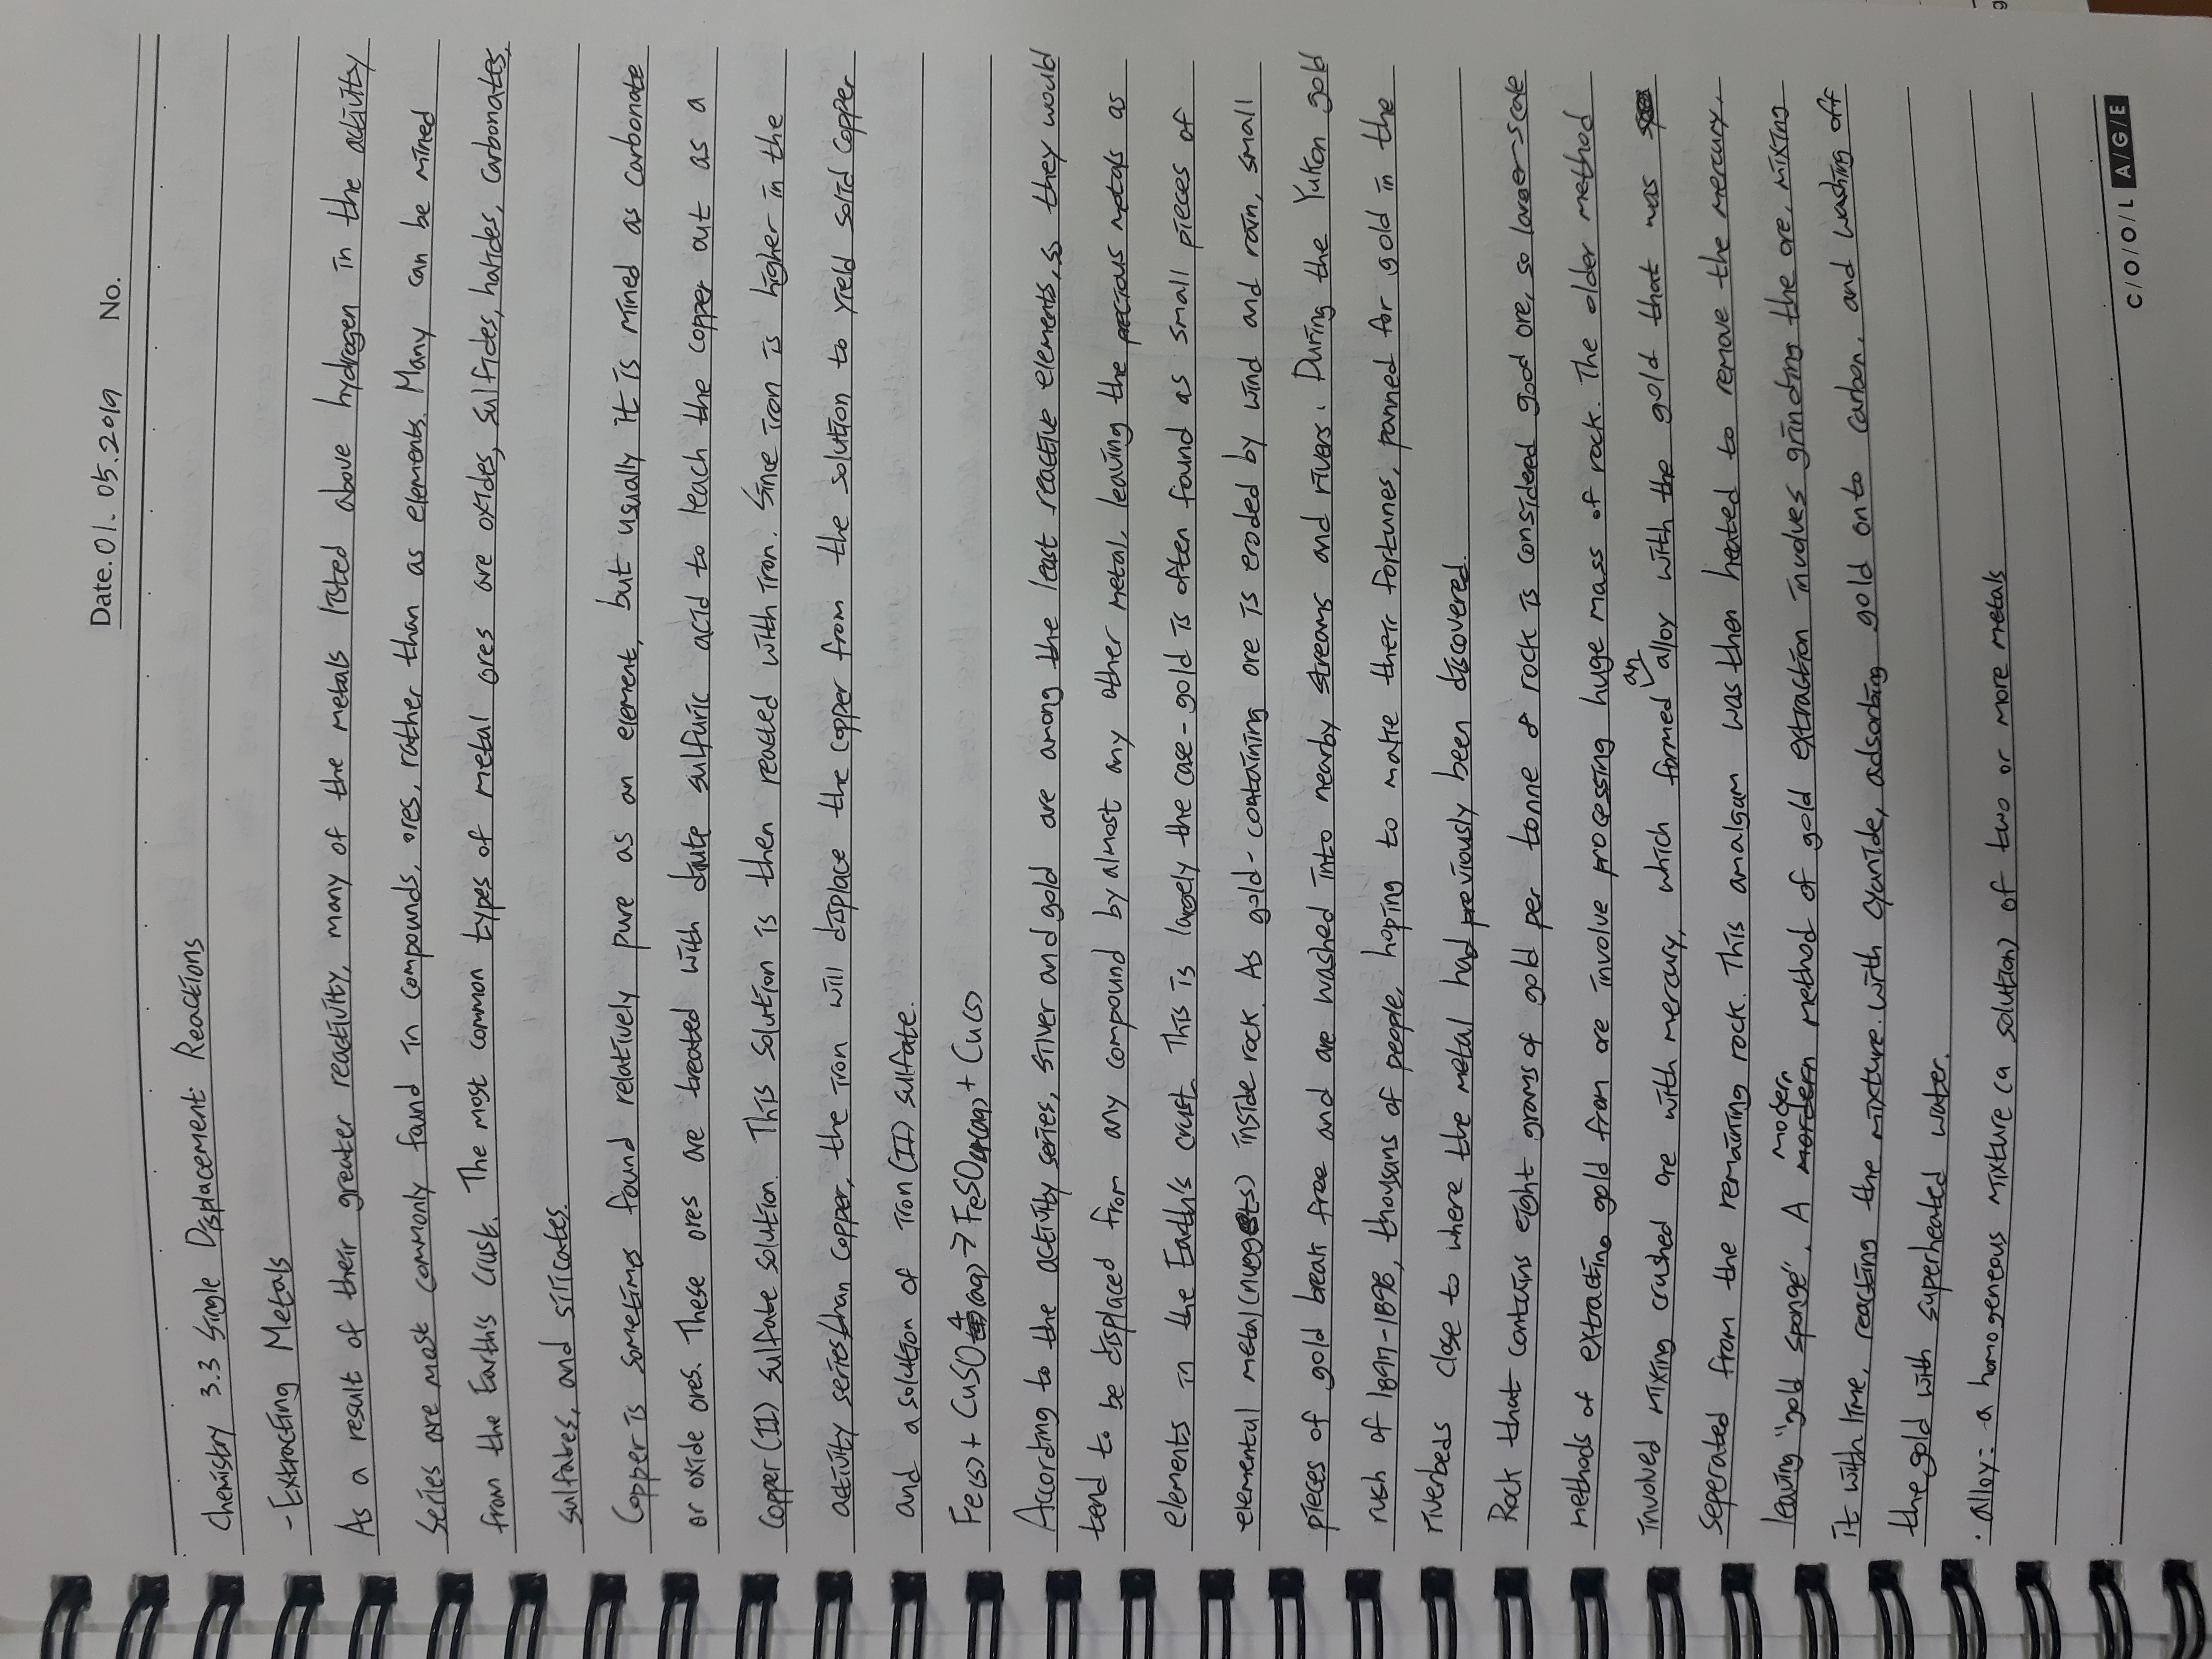 Date. 01. 05. 2019 No.
Chemistry 3.3 Single Displacement Reactions
- Extracting Metals
As a result of their greater reactivity, many of the metals listed above hydrogen in the activity
series are most commonly found in compounds, ores, rather than as elements. Many can be mined
from the Earth's crust. The most common types of metal ores are oxides, sulfides, halides, carbonates,
sulfates, and silicates.
Copper is sometimes found relatively pure as an element, but usually it is mined as carbonate
or oxide ores. These ores are treated with dilute sulfuric acid to leach the copper out as a
copper (II) sulfate solution. This solution is then reacted with iron. Since iron is higher in the
activity series than copper, the iron will displace the copper from the solution to yield solid copper
and a solution of iron (II) sulfate.
Fe(s) + CuSO4(aq) → FeSO4(aq) + Cu(s)
According to the activity series, silver and gold are among the least reactive elements, so they would
tend to be displaced from any compound by almost any other metal, leaving the precious metals as
elements in the Earth's crust. This is largely the case - gold is often found as small pieces of
elemental metal (nuggets) inside rock. As gold-containing ore is eroded by wind and rain, small
pieces of gold break free and are washed into nearby streams and rivers. During the Yukon gold
rush of 1897-1898, thousans of people, hoping to make their fortunes, panned for gold in the
riverbeds close to where the metal had previously been discovered.
Rock that contains eight grams of gold per tonne of rock is considered good ore, so larger-scale
methods of extracting gold from ore involve processing huge mass of rock. The older method
involved mixing crushed ore with mercury, which formed an alloy with the gold that was
seperated from the remaining rock. This amalgam was then heated to remove the mercury,
leaving "gold sponge". A modern method of gold extraction involves grinding the ore, mixing
it with lime, reacting the mixture with cyanide, adsorbing gold onto carbon, and washing off
the gold with superheated water.
· alloy: a homogeneous mixture (a solution) of two or more metals
C/O/O/L A/G/E